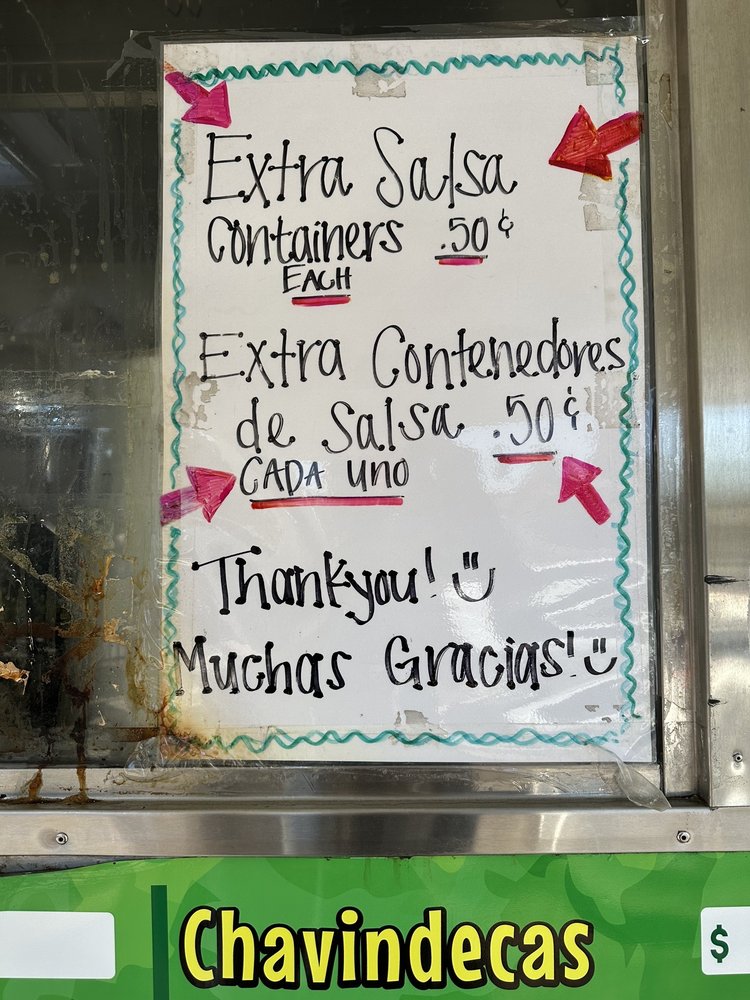 Extra Salsa
Containers .50¢
EACH
Extra Contenedores
de Salsa .50¢
CADA uno
Thankyou!
Muchas Gracias!
Chavindecas
$